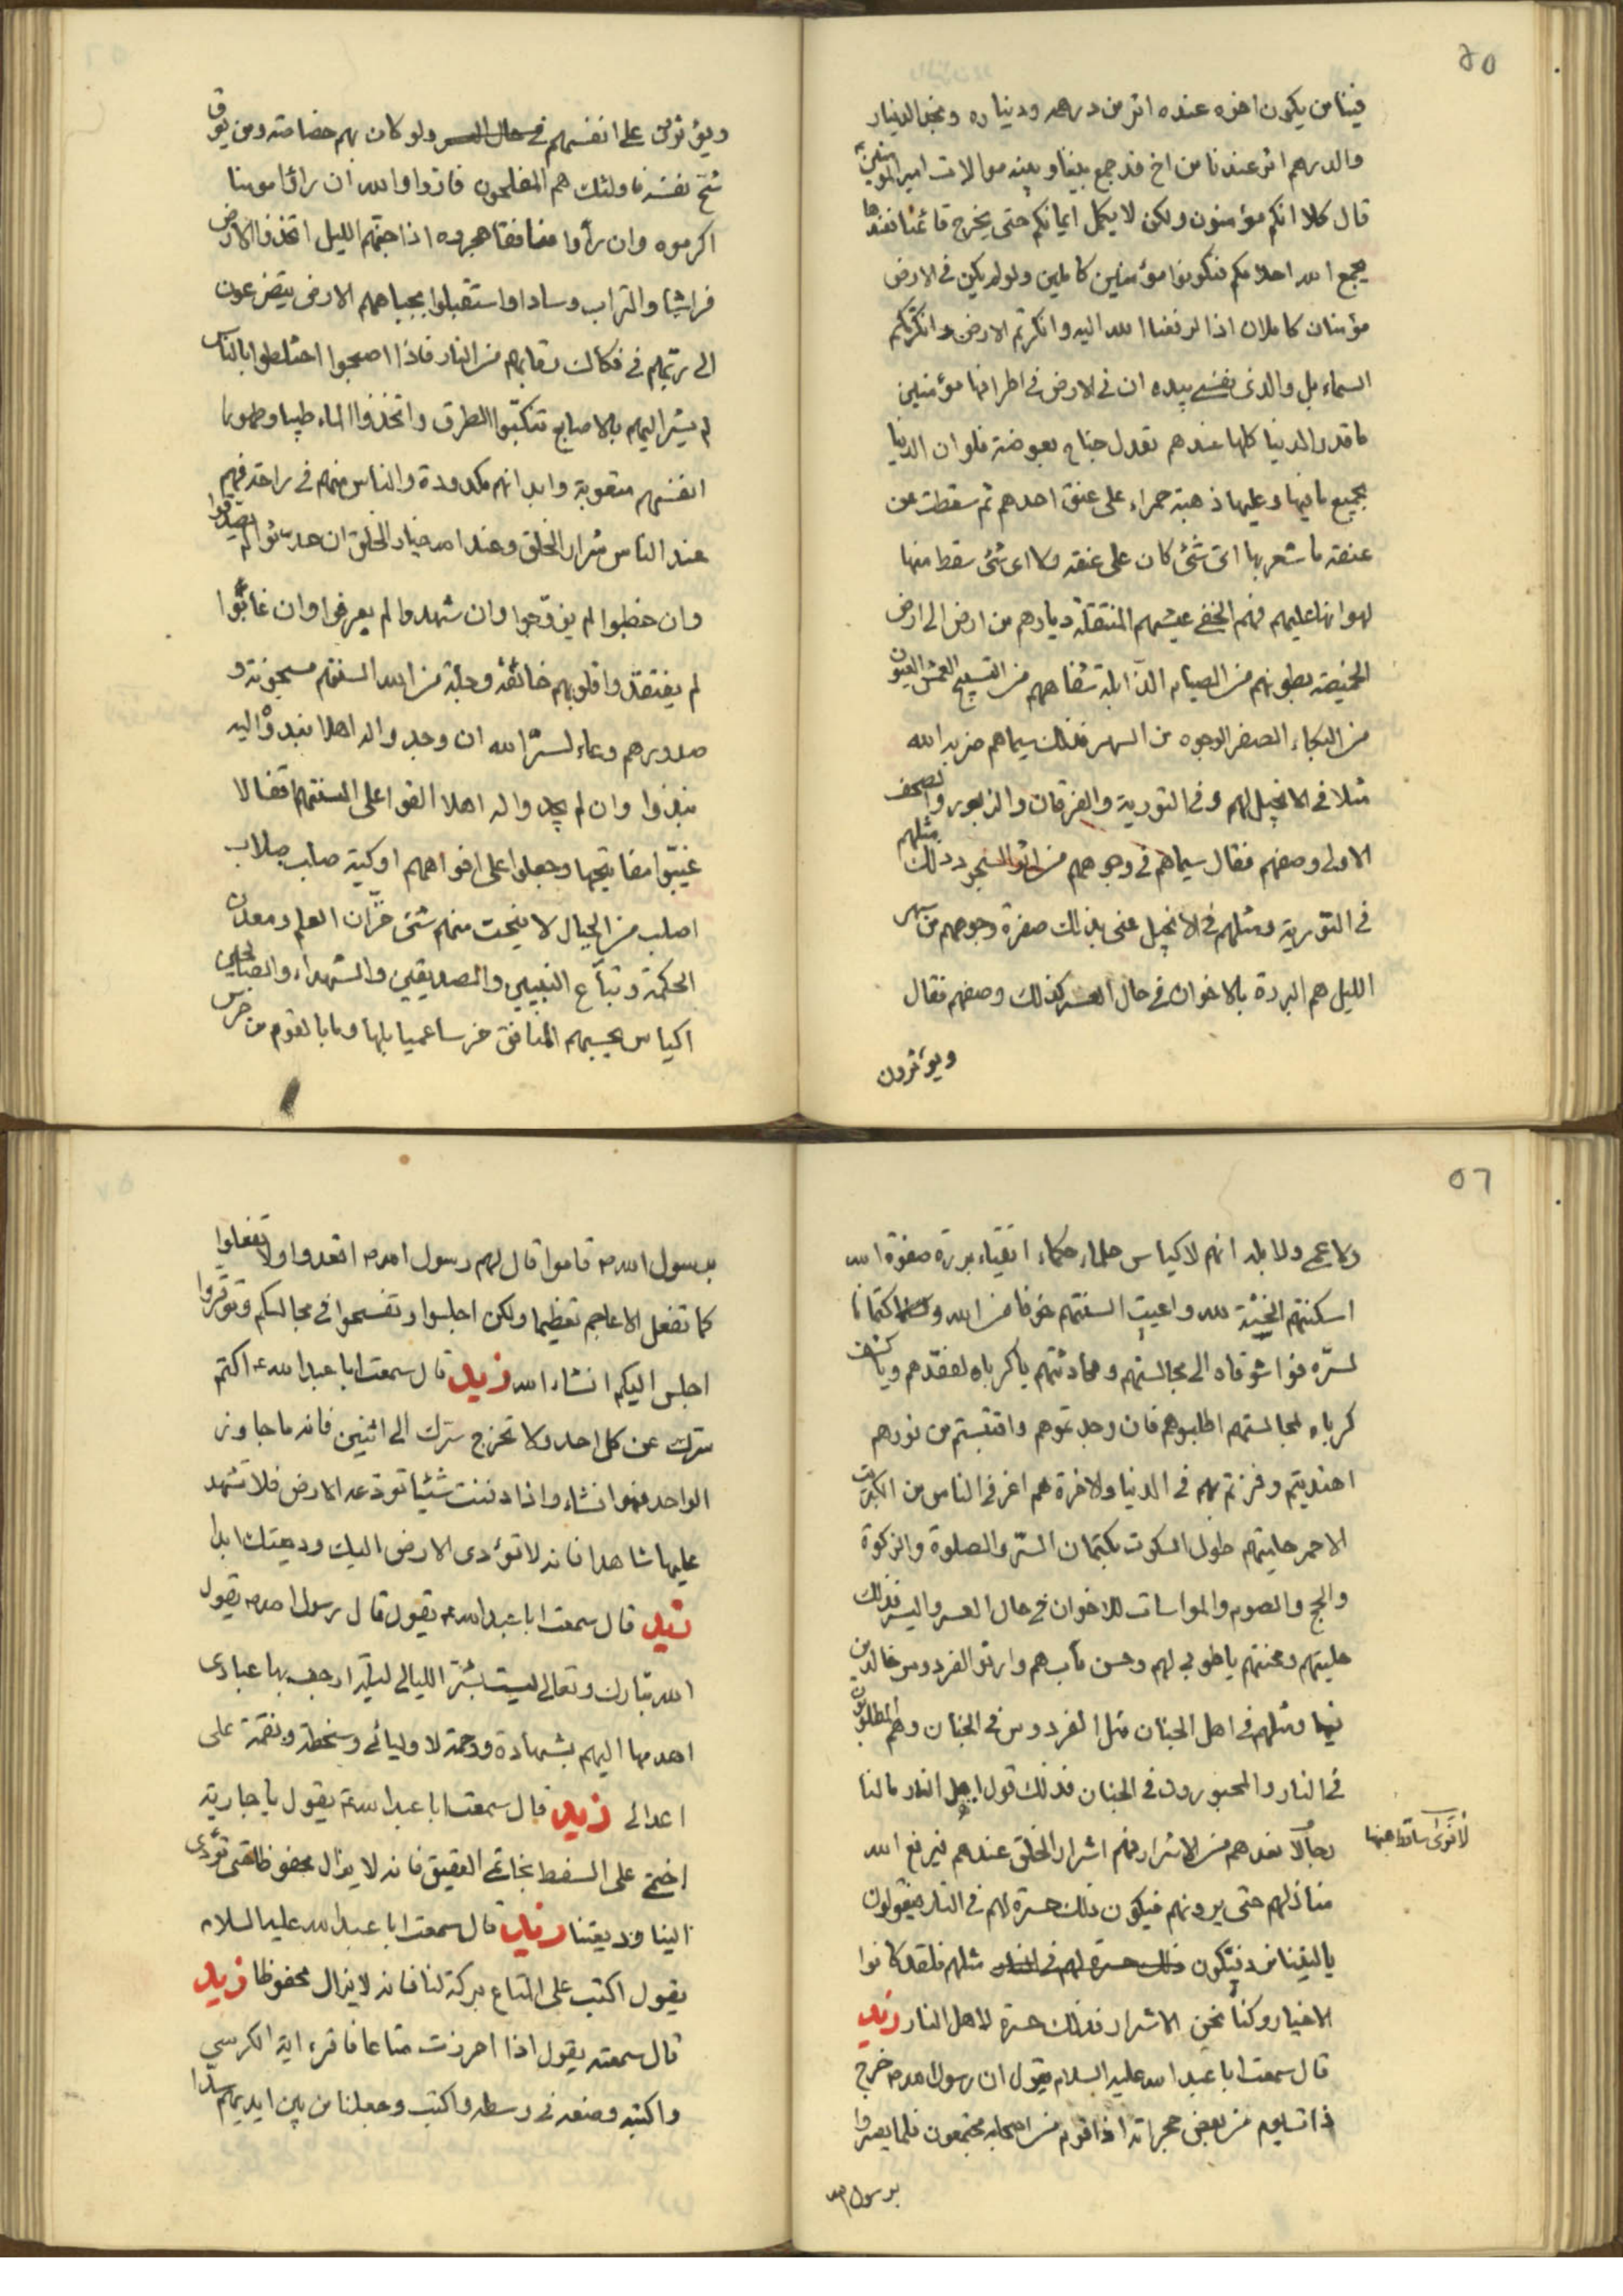 ٥٥
فينا من يكون اخوه عنده اثر من درهمه وديناره ونجد الدينار
والدرهم اثر عندنا من اخ قد جمع بيننا وبينه موالات امير المؤمنين ع
قال كلا انكم مؤمنون ولكن لا يكمل ايمانكم حتى يخرج قائمنا فعندها
يجمع الله احلامكم فتكونوا مؤمنين كاملين ولو لم يكن في الارض
مؤمنان كاملان اذا لرفعنا الله اليه وانكرتم الارض وانكرتكم
السماء بل والذى نفسى بيده ان في الارض في اطرافها مؤمنين
ما قدر الدنيا كلها عندهم تعدل جناح بعوضة فلو ان الدنيا
بجميع ما فيها وعليها ذهبة حمراء على عنق احدهم ثم سقطت عن
عنقه ما شعر بها اى شئ كان على عنقه ولا اى شئ سقط منها
لهوانها عليهم فهم الخفى عيشهم المنتقلة ديارهم من ارض الى ارض
الخميصة بطونهم من الصيام الذابلة شفاههم من التسبيح العمش العيون
من البكاء الصفر الوجوه من السهر فذلك سيماهم ضربه الله
مثلا في الانجيل لهم وفي التورية والفرقان والزبور والصحف
الاولى وصفهم فقال سيماهم في وجوههم من اثر السجود ذلك مثلهم
في التورية ومثلهم في الانجيل عنى بذلك صفرة وجوههم من سهر
الليل هم البررة بالاخوان في حال العسر كذلك وصفهم فقال
ويؤثرون
ويؤثرون على انفسهم في حال العسر ولو كان بهم خصاصة ومن يوق
شح نفسه فاولئك هم المفلحون فازوا والله ان رأوا مومنا
اكرموه وان رأوا منافقا هجروه اذا جنهم الليل اتخذوا الارض
فراشا والتراب وسادا واستقبلوا بجباههم الارض يتضرعون
الى ربهم في فكاك رقابهم من النار فاذا اصبحوا اختلطوا بالناس
لم يشر اليهم بالاصابع تنكبوا الطرق واتخذوا الماء طيبا وطهورا
انفسهم متعوبة وابدانهم مكدودة والناس منهم في راحة فهم
عند الناس شرار الخلق وعند الله خيار الخلق ان حدثوا لم يصدقوا
وان خطبوا لم يزوجوا وان شهدوا لم يعرفوا وان غابوا
لم يفتقدوا قلوبهم خائفة وجلة من الله السنتهم مسجونة و
صدورهم وعاء لسر الله ان وجدوا له اهلا نبذوه اليه
نبذوا وان لم يجدوا له اهلا القوا على السنتهم اقفالا
غيبوا مفاتيحها وجعلوا على افواههم اوكية صلب صلاب
اصلب من الجبال لا ينحت منهم شئ خزان العلم ومعدن
الحكمة وتباع النبيين والصديقين والشهداء والصالحين
اكياس يحسبهم المنافق خرسا عميا بلها وما بالقوم من خرس
٥٦
ولا عمى ولا بله انهم لاكياس حلماء حكماء اتقياء بررة صفوة الله
اسكنتهم الخشية لله واعيت السنتهم خوفا من الله وكتمانا
لسره فوا شوقاه الى مجالستهم ومحادثتهم يا كرباه لفقدهم ويا كشف
كرباه لمجالستهم اطلبوهم فان وجدتموهم واقتبستم من نورهم
اهتديتم وفزتم بهم في الدنيا والاخرة هم اعز في الناس من الكبريت
الاحمر حليتهم طول السكوت بكتمان السر والصلوة والزكوة
والحج والصوم والمواسات للاخوان في حال العسر واليسر فذلك
حليتهم ومحبتهم يا طوبى لهم وحسن مآب هم وارثوا الفردوس خالدين
فيها ومثلهم في اهل الجنان مثل الفردوس في الجنان وهم المطلوبون
في النار والمحبورون في الجنان فذلك قول اهل النار ما لنا
لا نرى رجالا نعدهم من الاشرار فهم اشرار الخلق عندهم فيرفع الله
منازلهم حتى يرونهم فيكون ذلك حسرة لهم في النار فيقولون
يا ليتنا نرد فنكون مثلهم فلقد كانوا
الاخيار وكنا نحن الاشرار فذلك حسرة لاهل النار زيد
قال سمعت ابا عبد الله عليه السلام يقول ان رسول الله ص خرج
ذات يوم من بعض حجراته اذا قوم من اصحابه مجتمعون فلما بصروا
برسول الله
برسول الله ص قاموا قال لهم رسول الله ص اقعدوا ولا تفعلوا
كما تفعل الاعاجم تعظيما ولكن اجلسوا وتفسحوا في مجالسكم وتوقروا
اجلس اليكم انشاء الله زيد قال سمعت ابا عبد الله ع اكتم
سرك عن كل احد ولا تخرج سرك الى اثنين فانه ما جاوز
الواحد فهو افشاء واذا دفنت شئيا تودعه الارض فلا تشهد
عليها شاهدا فانه لا تؤدى الارض اليك وديعتك ابدا
زيد قال سمعت ابا عبد الله ع يقول قال رسول الله ص يقول
الله تبارك وتعالى ليست بشر الليالى ليلة ارجف بها عبادى
اهدمها اليهم بشهادة ورحمة لاوليائى وسخطة ونقمة على
اعدائى زيد قال سمعت ابا عبد الله ع يقول يا جارية
اختمى على السفط بخاتم العقيق فانه لا يزال محفوظا حتى تؤدى
الينا وديعتنا زيد قال سمعت ابا عبد الله عليه السلام
يقول اكتب على المتاع بركة لنا فانه لا يزال محفوظا زيد
قال سمعته يقول اذا احرزت متاعا فاقرء اية الكرسي
واكتبه وضعه في وسطه واكتب وجعلنا من بين ايديهم سدا